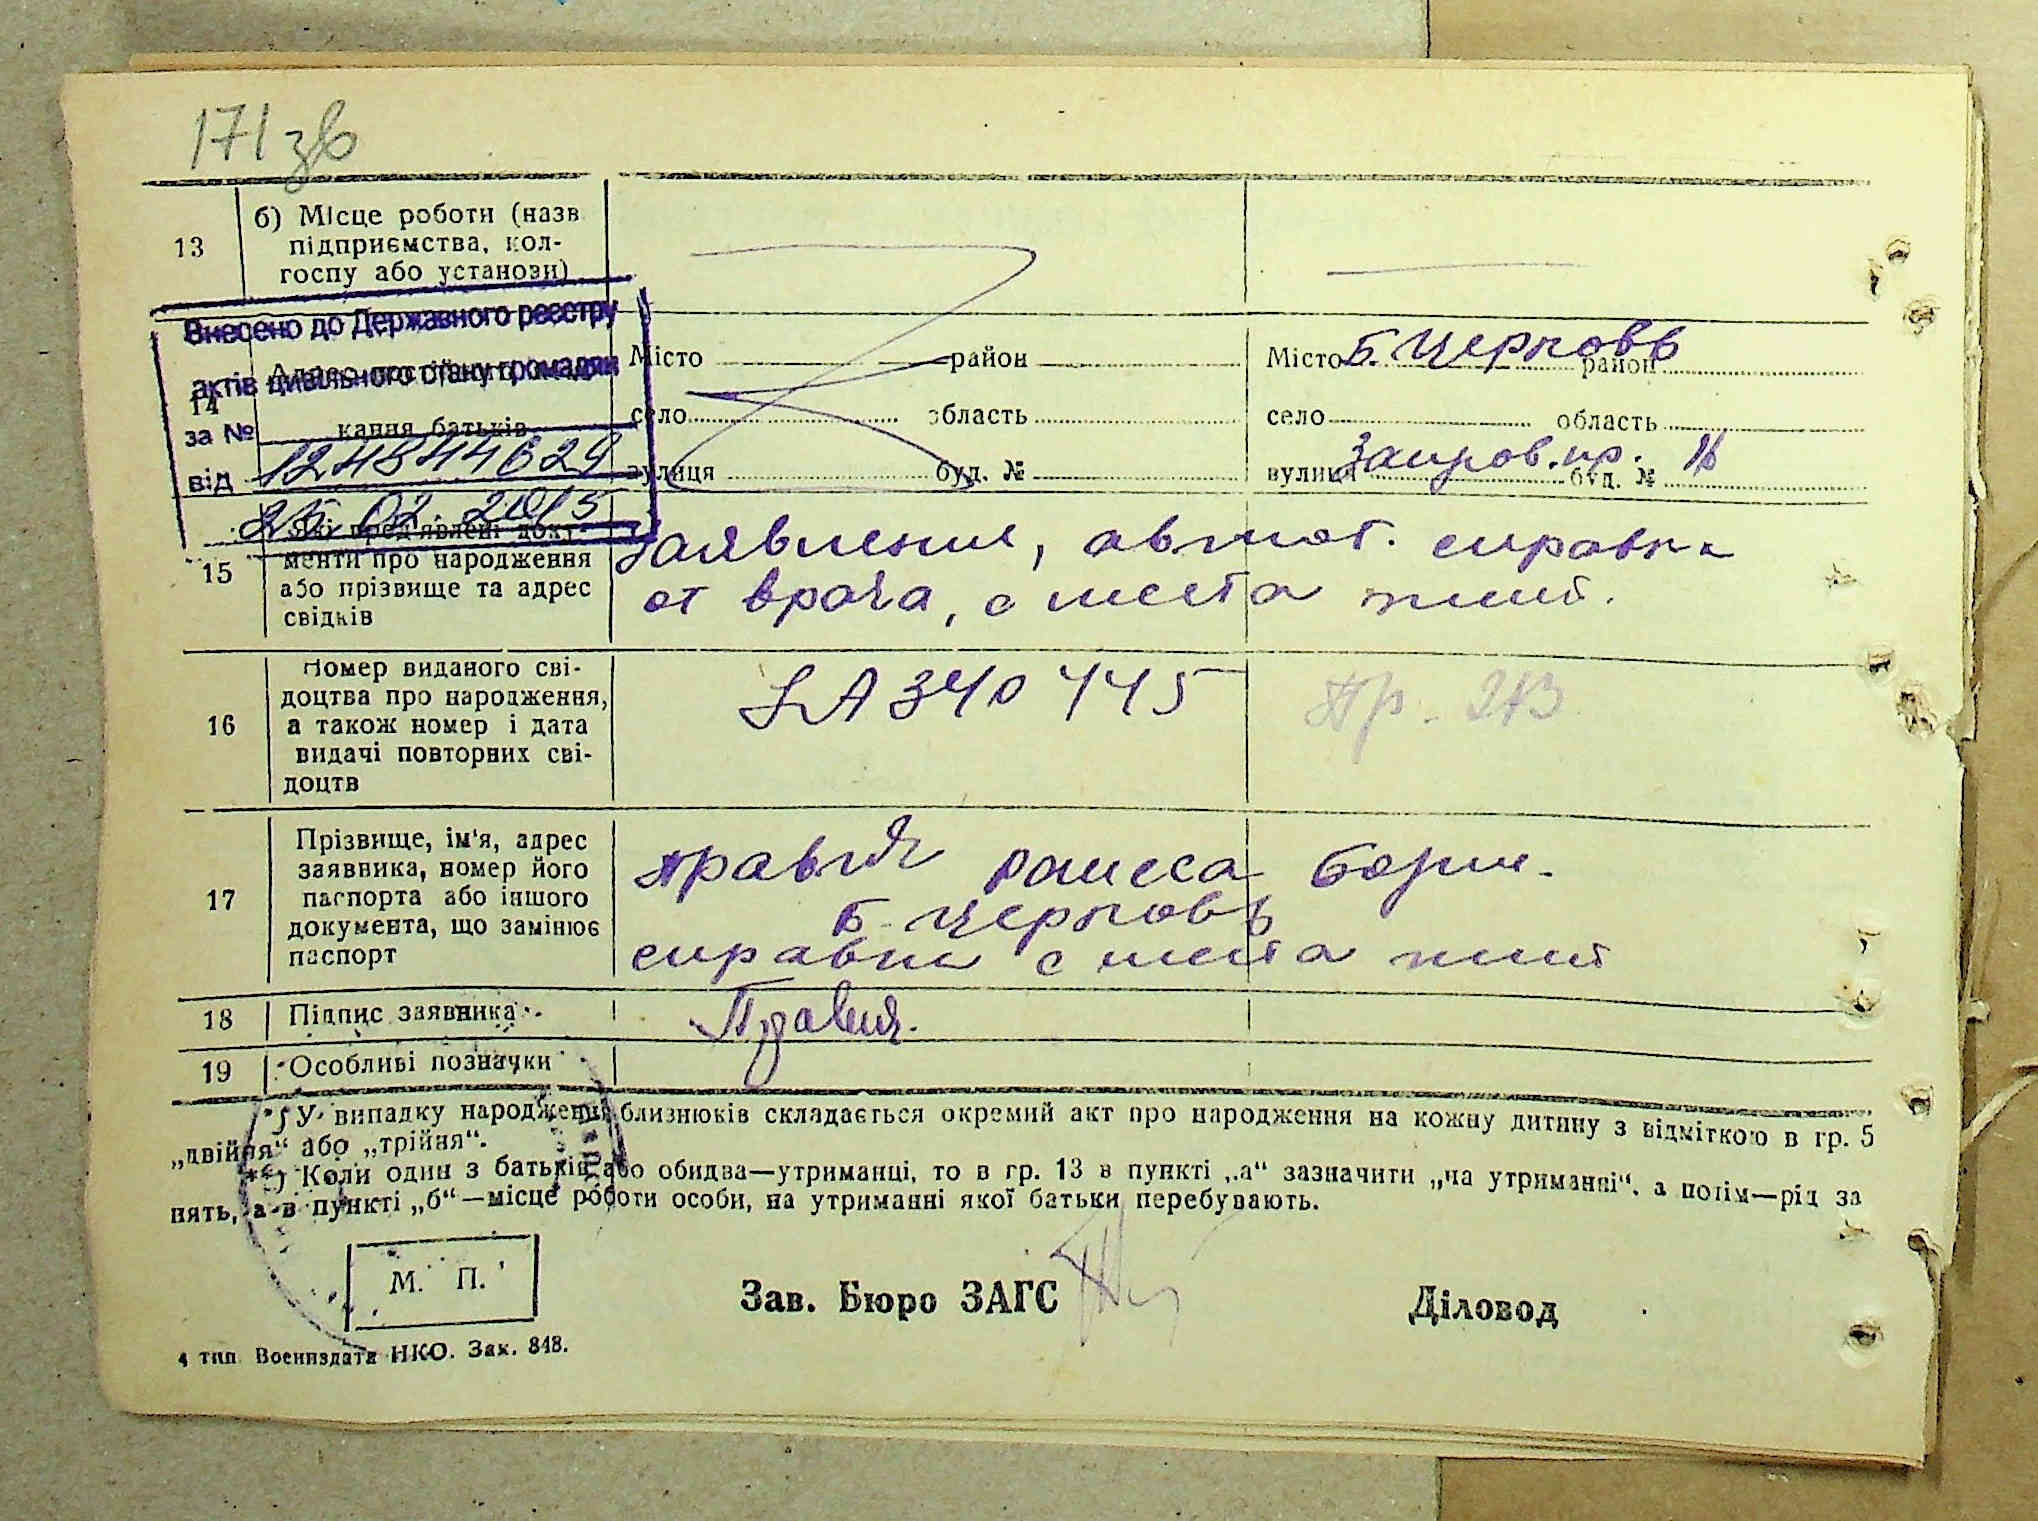 171 зв
13
б) Місце роботи (назв
підприємства, кол-
госпу або установи)
Внесено до Державного реєстру
актів цивільного стану громадян
за №
від 12484
02. 2015
14
кання батьків
Місто район
село область
вулиця буд. №
Місто Б. Церковь район
село область
вулиця пр. буд. №
15
Які пред'явлені доку-
менти про народження
або прізвище та адрес
свідків
Заявление, справка
от врача, с места жит.
16
Номер виданого сві-
доцтва про народження,
а також номер і дата
видачі повторних сві-
доцтв
340 445
Пр.
17
Прізвище, ім'я, адрес
заявника, номер його
паспорта або іншого
документа, що замінює
паспорт
Раисса Борис.
Б. Церковь
справка с места жит
18
Підпис заявника
19
Особливі позначки
*) У випадку народження близнюків складається окремий акт про народження на кожну дитину з відміткою в гр. 5
„двійня“ або „трійня“.
**) Коли один з батьків або обидва—утриманці, то в гр. 13 в пункті „а“ зазначити „на утриманні“, а потім—рід за
нять, а в пункті „б“—місце роботи особи, на утриманні якої батьки перебувають.
М. П.
Зав. Бюро ЗАГС
Діловод
4 тип. Воениздата НКО. Зак. 848.